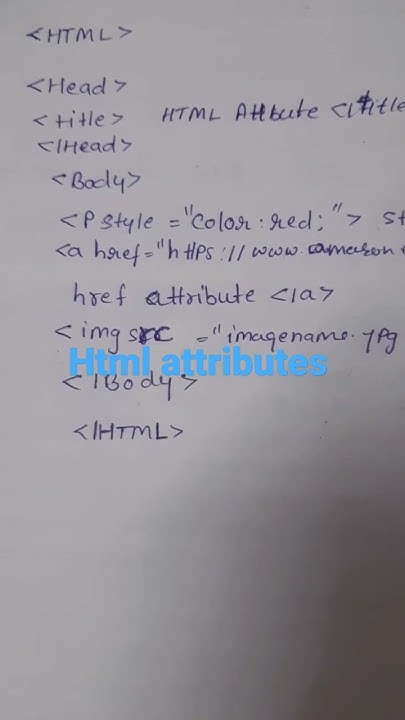 <HTML>
<Head>
<title> HTML Attbute </title
</Head>
<Body>
<P style ="color:red;"> st
<a href="https://www.amason
href attribute </a>
<img src ="imagename.jpg
Html attributes
</Body>
</HTML>